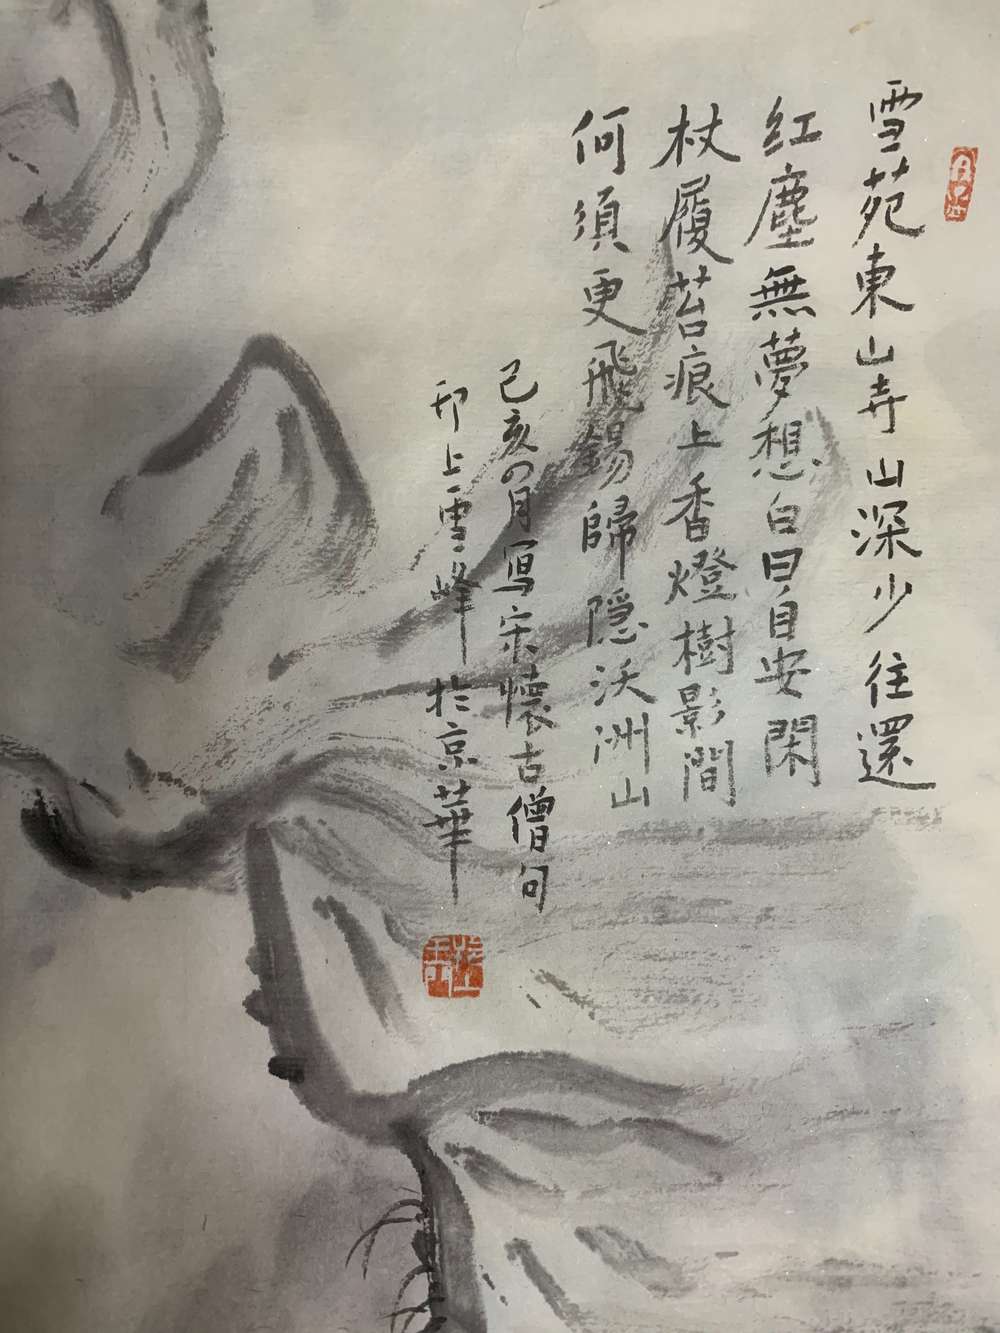 雪苑東山寺山深少往還
红塵無夢想白日自安閑
杖履苔痕上香燈樹影間
何須更飛錫歸隱沃洲山
己亥四月写宋懷古僧句
邗上雪峰於京華